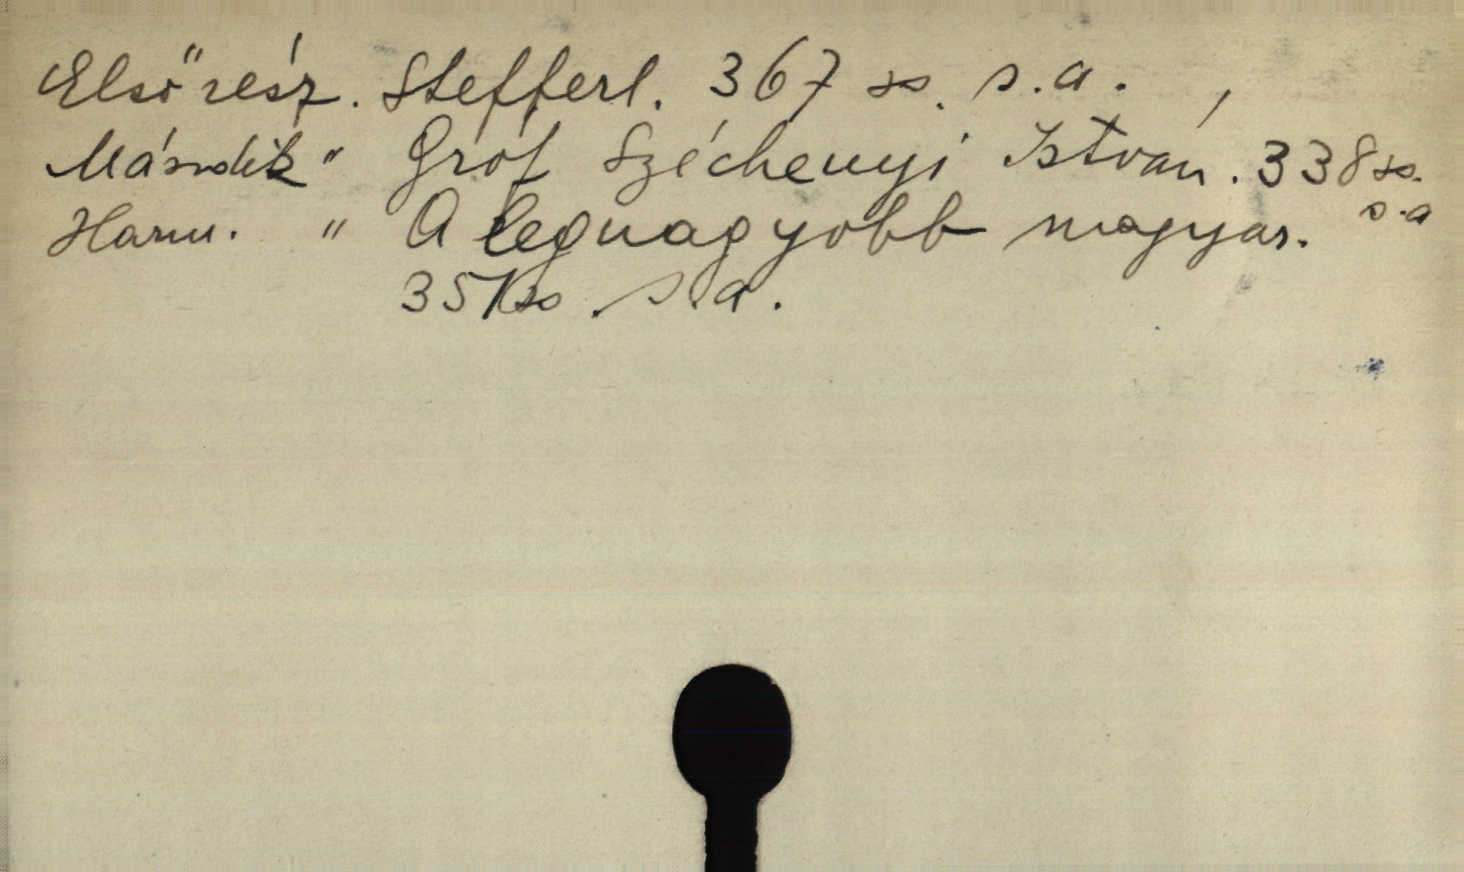 Első rész. Stefferl. 367 ss. s.a.
Második " Gróf Széchenyi István. 338 ss.
s.a
Harm. " A legnagyobb magyar.
351 ss. s.a.